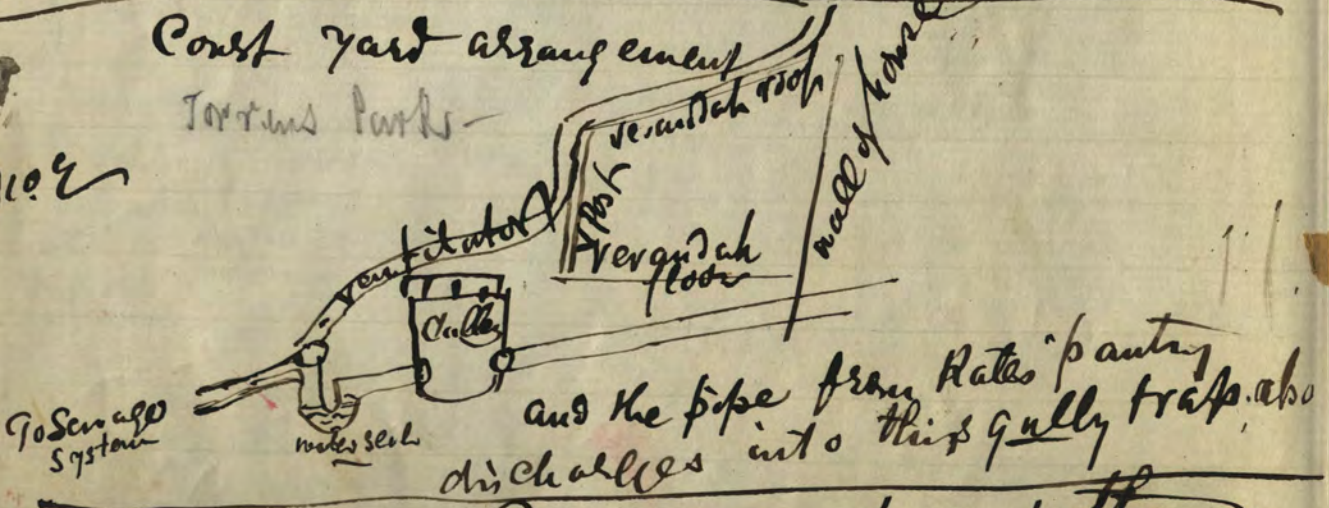 Court yard arrangement
Torrens Park -
verandah roof
wall of house
Post
ventilator
verandah
floor
Gulley
To Sewage
System
water seal
and the pipe from Kates pantry
discharges into this gully trap. also